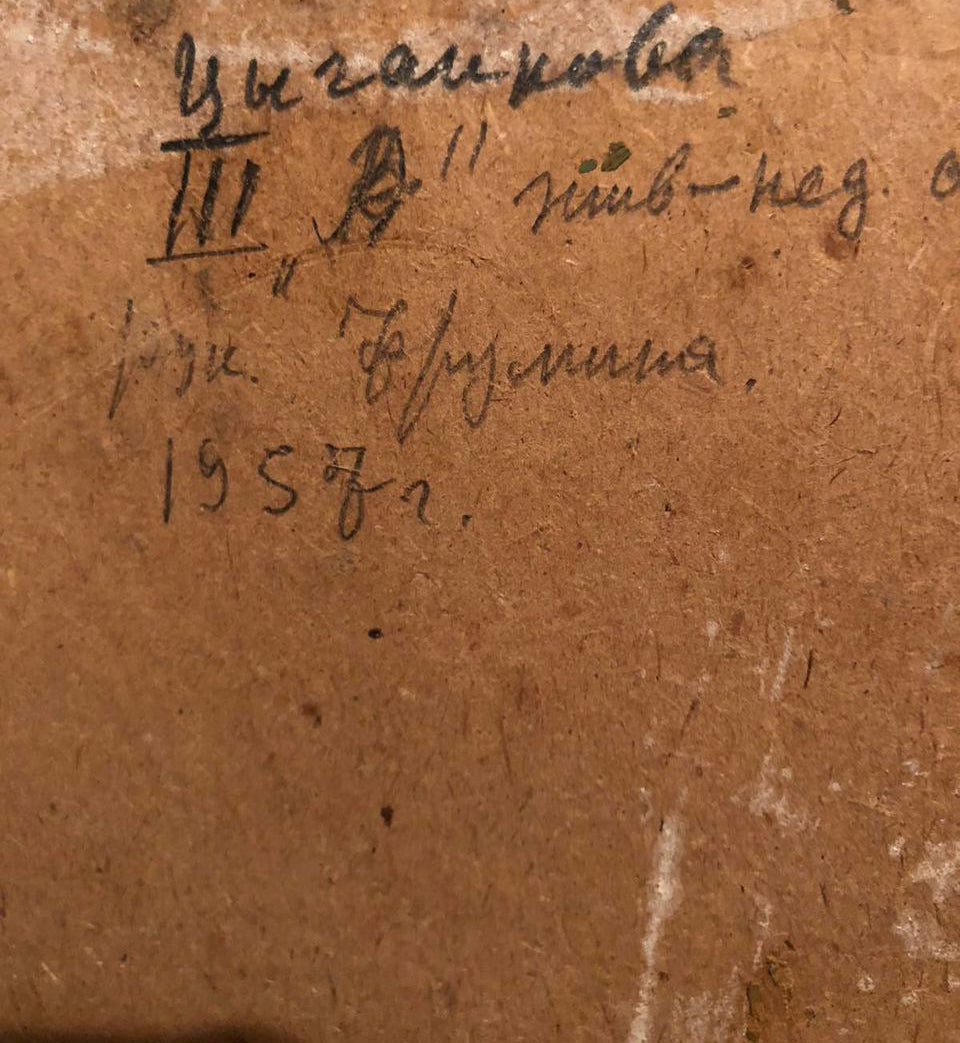 Цыганкова
III „А" жив-пед. о
рук. Фрумина.
1957 г.